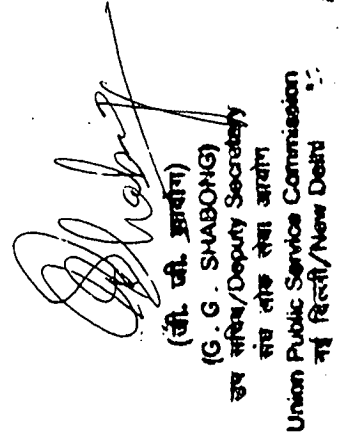 (जी. जी. शाबोंग)
(G. G. SHABONG)
उप सचिव/Deputy Secretary
संघ लोक सेवा आयोग
Union Public Service Commission
नई दिल्ली/New Delhi